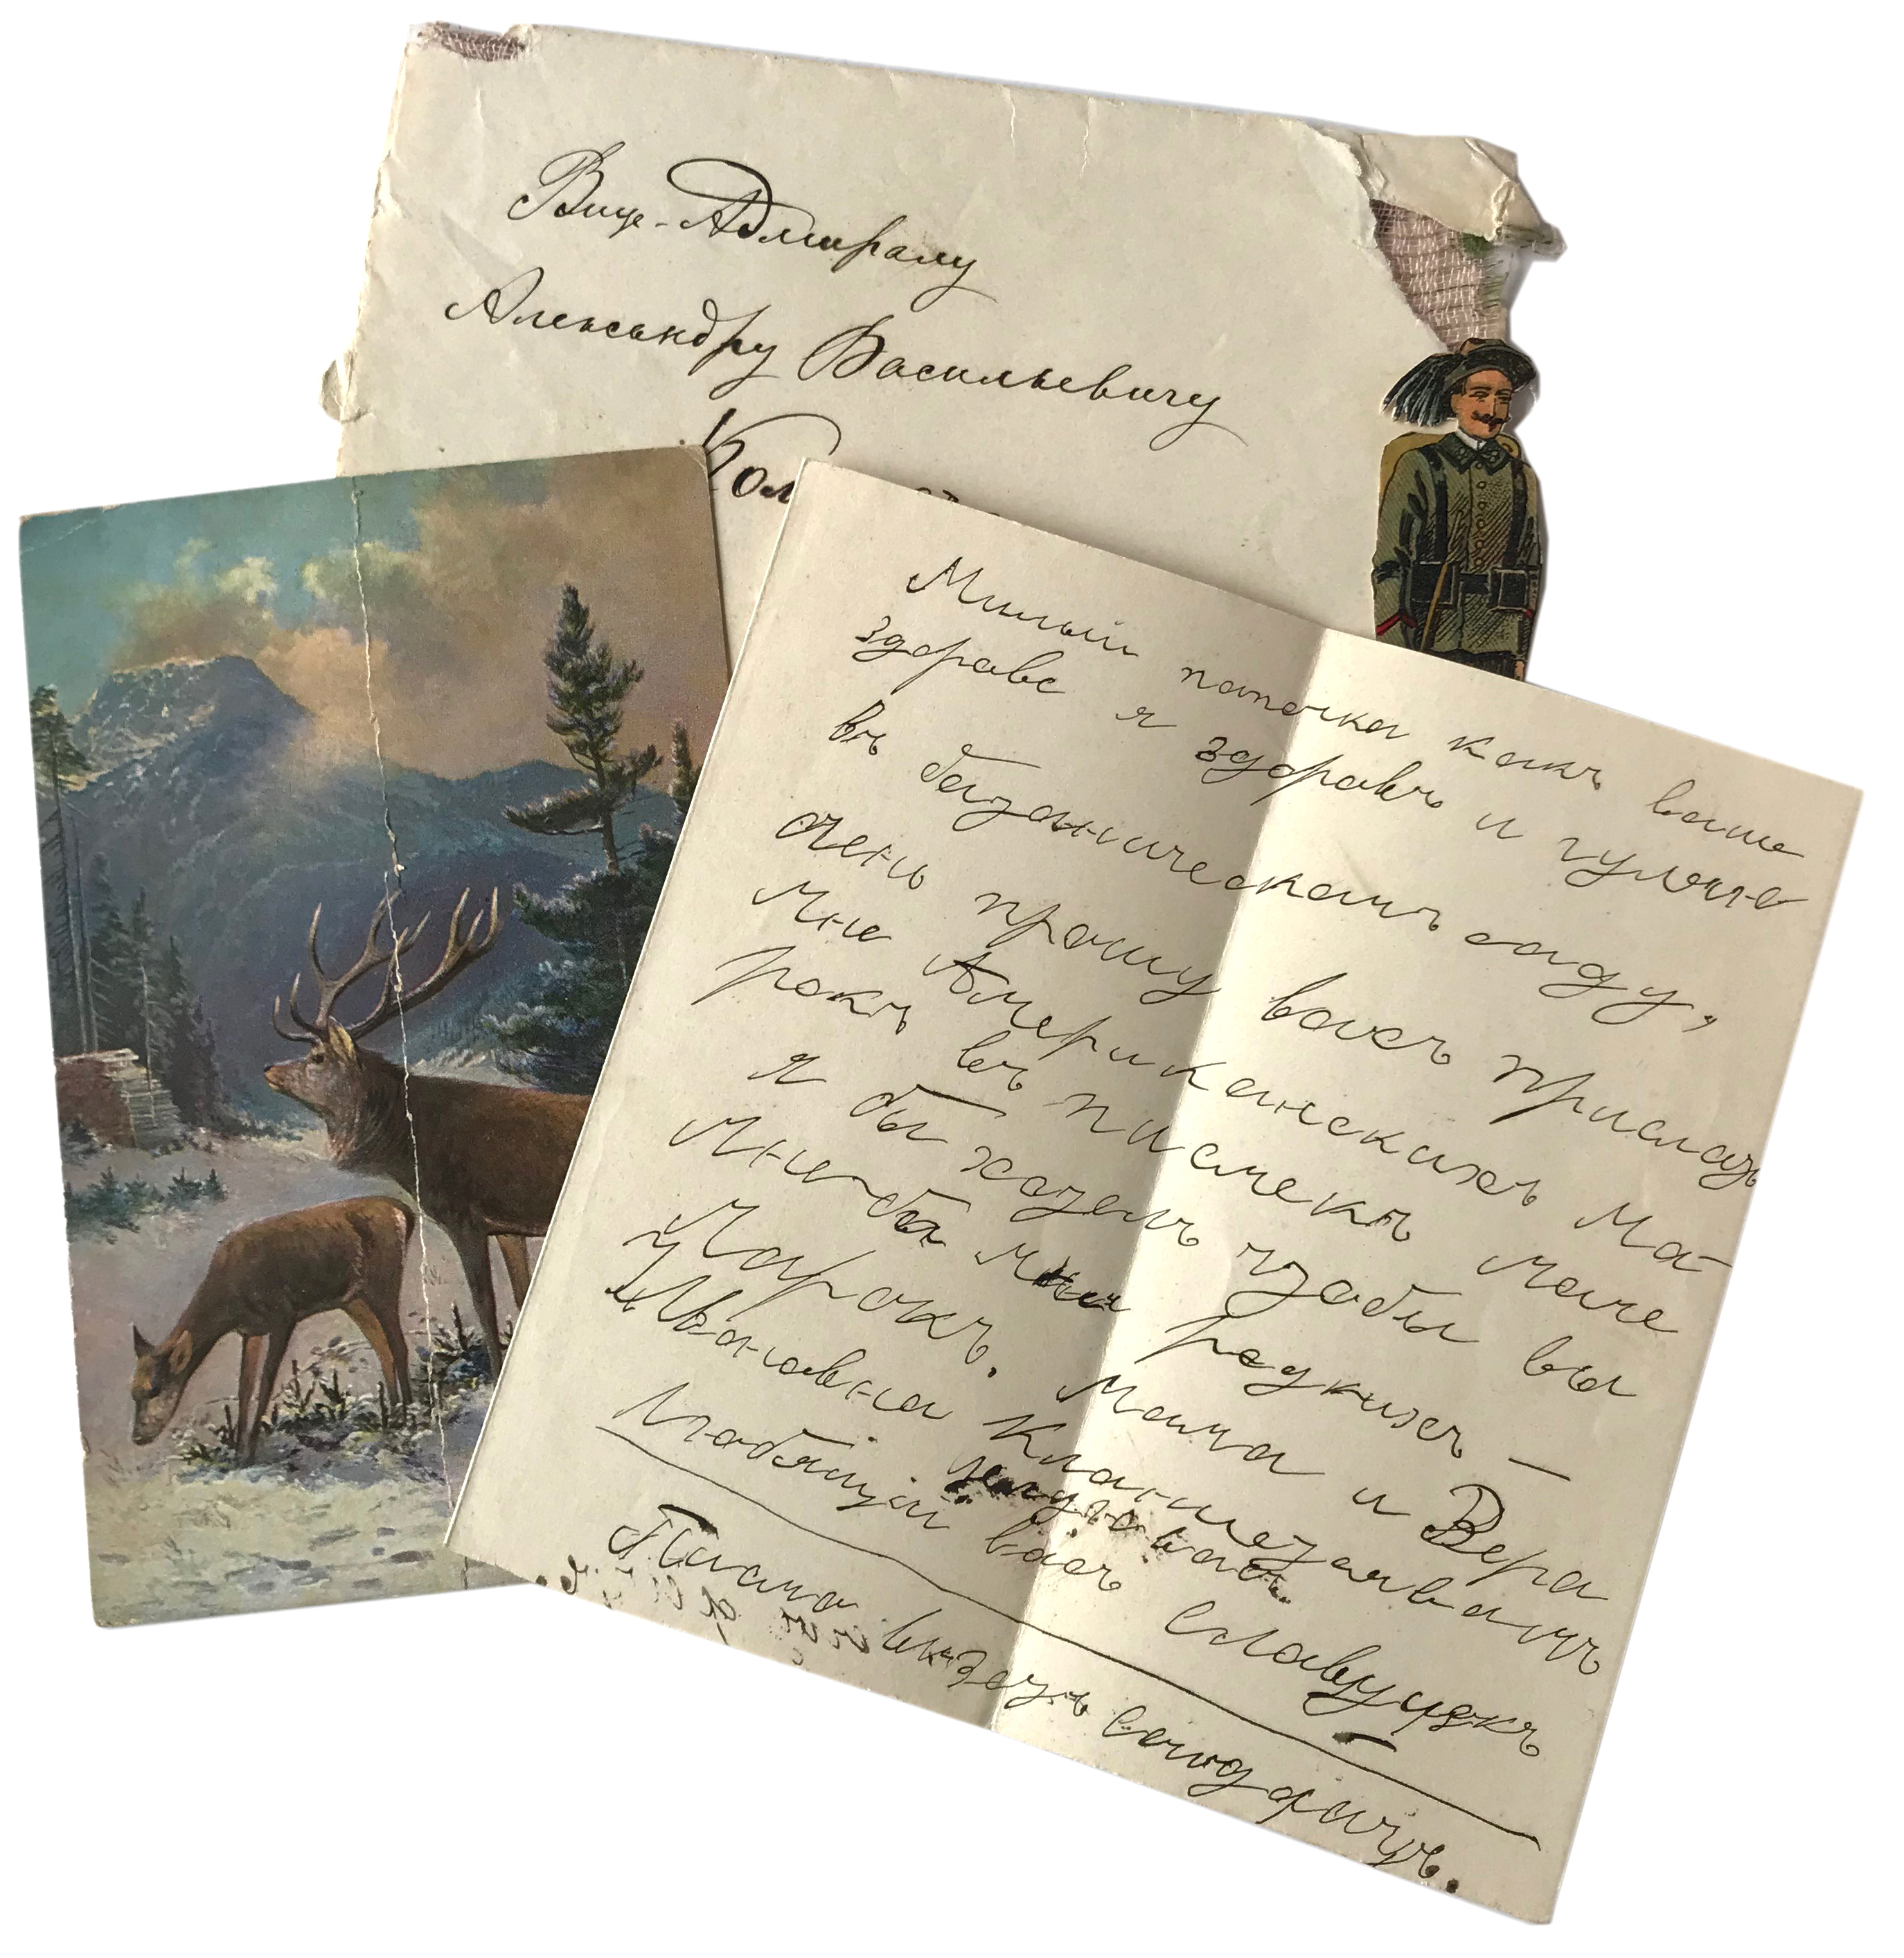 Вице-Адмиралу
Александру Васильевичу
Кол
Милый папочка какъ ваше
здравье я здоровъ и гуляю
въ батаническомъ саду,
очень прошу васъ прислать
мне Американскихъ Ма-
рокъ въ писмекъ маме
я бы хотелъ чтобы вы
мне редкихъ —
Марокъ. Мама и Вера
Ивановна кланиеются вамъ
Любящій васъ Славушекъ
Писмо везетъ